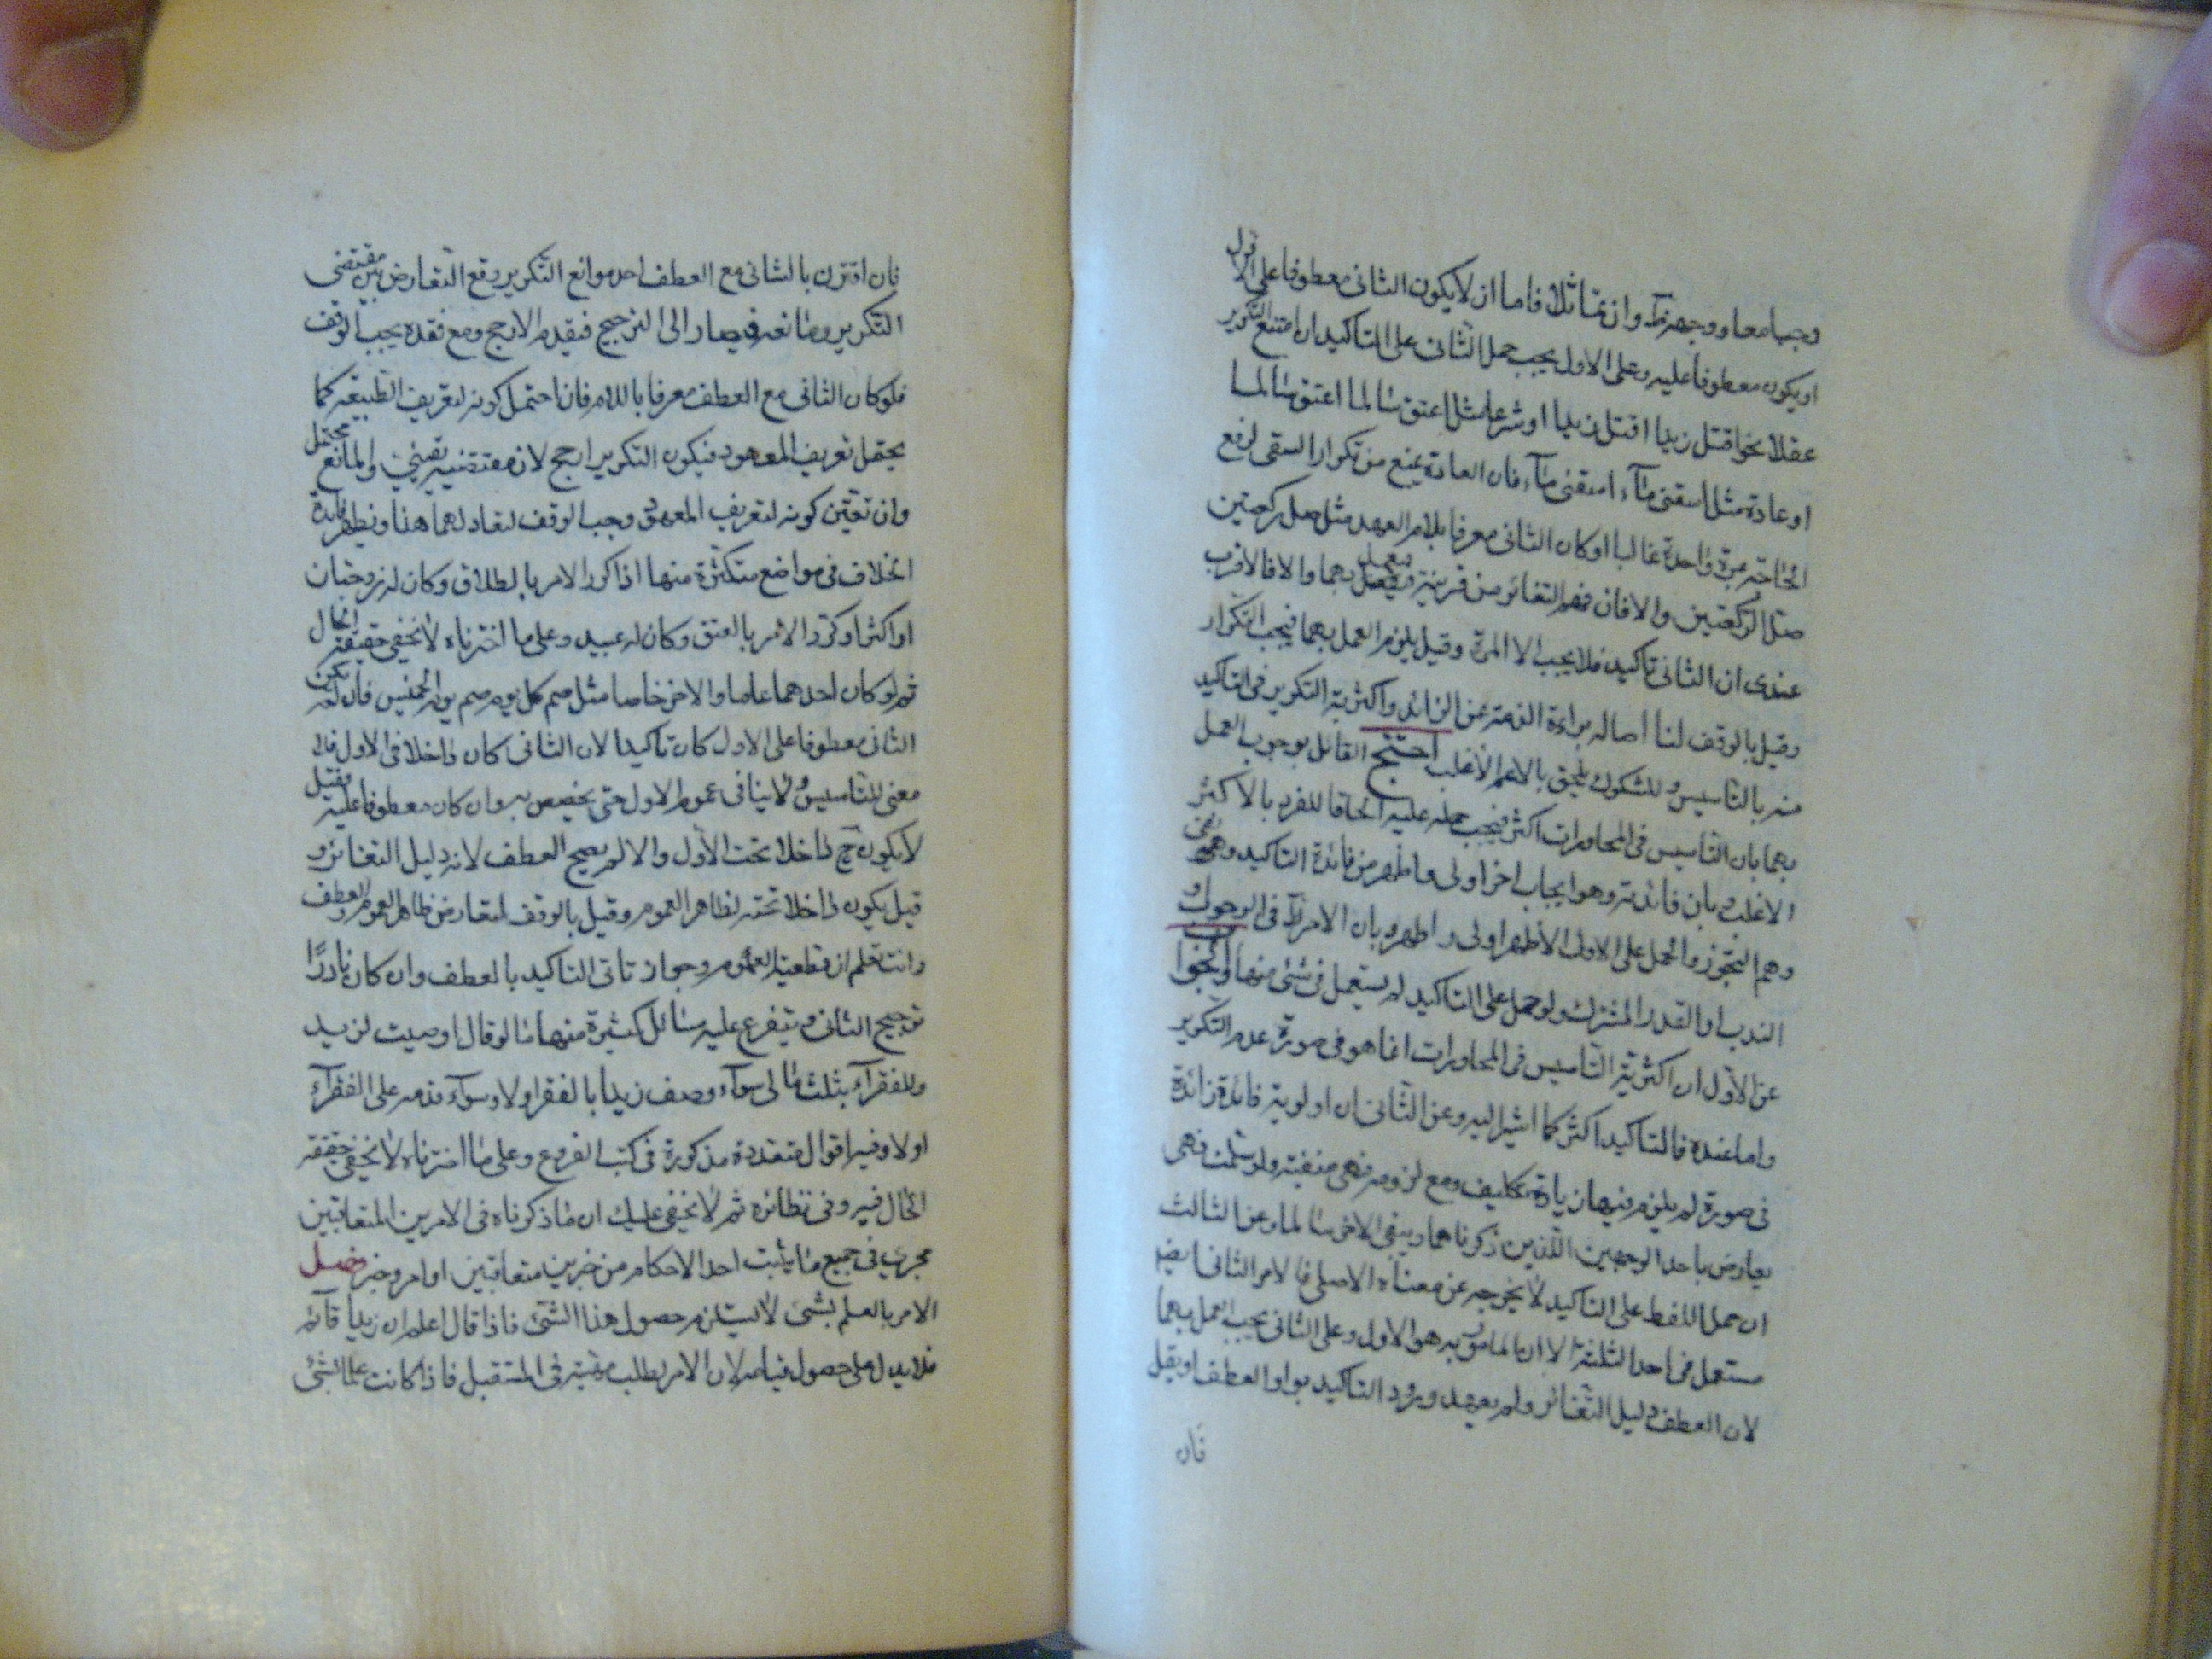 وجبا معا ووجهه ظ وان تماثلا فاما ان لا يكون الثانى معطوفا على الاول
او يكون معطوفا عليه وعلى الاول يجب حمل الثانى على التاكيد ان امتنع التكرير
عقلا نحو اقتل زيدا اقتل زيدا او شرعا مثل اعتق سالما اعتق سالما
او عادة مثل اسقنى ماء اسقنى ماء فان العادة يمنع من تكرار السقى لرفع
الحاجة بمرة واحدة غالبا او كان الثانى معرفا بلام العهد مثل صل ركعتين
صل الركعتين والا فان فهم التغائر من قرينة فيعمل بهما والا فالاقرب
عندى ان الثانى تاكيد فلا يجب الا المرة وقيل يلزم العمل بهما فيجب التكرار
وقيل بالوقف لنا اصالة براءة الذمة عن الزائد واكثرية التكرير فى التاكيد
منه بالتاسيس والمشكوك يلحق بالاعم الاغلب احتج القائل بوجوب العمل
بهما بان التاسيس فى المحاورات اكثر فيجب حمله عليه الحاقا للفرد بالاكثر
الاغلب وبان فائدته وهو ايجاب اخر اولى واظهر من فائدة التاكيد وهى نفى
وهم التجوز والحمل على الاولى الاظهر اولى واظهر وبان الامر ظ فى الوجوب او
الندب او القدر المشترك ولو حمل على التاكيد لم يستعمل فى شئ منها والجواب
عن الاول ان اكثرية التاسيس فى المحاورات انما هو فى صورة عدم التكرير
واما عنده فالتاكيد اكثر كما اشير اليه وعن الثانى ان اولوية فائدة زائدة
فى صورة لم يلزم فيها زيادة تكليف ومع لزومه فهى منفية ولو سلمت فهى
يعارض باحد الوجهين اللذين ذكرناهما ويبقى الاخر سالما وعن الثالث
ان حمل اللفظ على التاكيد لا يخرجه عن معناه الاصلى فالامر الثانى ايضا
مستعمل فى احد الثلثة الا ان المامور به هو الاول وعلى الثانى يجب العمل بهما
لان العطف دليل التغائر ولم يعهد ورود التاكيد بواو العطف او يقل
فان
فان اقترن بالثانى مع العطف احد موانع التكرير وقع التعارض بين مقتضى
التكرير ومانعه فيصار الى الترجيح فيقدم الارجح ومع فقده يجب الوقف
فلو كان الثانى مع العطف معرفا باللام فان احتمل كونه لتعريف الطبيعة كما
يحتمل تعريف المعهود فيكون التكرير ارجح لان مقتضيه يقينى والمانع محتمل
وان تعين كونه لتعريف المعهود وجب الوقف لتعادلهما هنا ويظهر فائدة
الخلاف فى مواضع متكثرة منها اذا كرر الامر بالطلاق وكان له زوجتان
او اكثر او كرر الامر بالعتق وكان له عبيد وعلى ما اخترناه لا يخفى حقيقة الحال
ثم لو كان احدهما عاما والاخر خاصا مثل صم كل يوم صم يوم الخميس فان لم يكن
الثانى معطوفا على الاول كان تاكيدا لان الثانى كان داخلا فى الاول فلا
معنى للتاسيس ولا ينافى عموم الاول حتى يخصص به وان كان معطوفا عليه فقيل
لا يكون ح داخلا تحت الاول والا لم يصح العطف لانه دليل التغائر و
قيل يكون داخلا تحته لظاهر العموم وقيل بالوقف لتعارض ظاهر العموم والعطف
وانت تعلم ان قطعية العموم وجواز تاتى التاكيد بالعطف وان كان نادرا
ترجيح الثانى ويتفرع عليه مسائل كثيرة منها ما لو قال اوصيت لزيد
وللفقراء بثلث مالى سواء وصف زيدا بالفقر اولا وسواء قدمه على الفقراء
اولا وفيه اقوال متعددة مذكورة فى كتب الفروع وعلى ما اخترناه لا يخفى حقيقة
الحال فيه وفى نظائره ثم لا يخفى عليك ان ما ذكرناه فى الامرين المتعاقبين
يجرى فى جميع ما يثبت احد الاحكام من خبرين متعاقبين او امر وخبر فصل
الامر بالعلم بشئ لا يستلزم حصول هذا الشئ فاذا قال اعلم ان زيدا قائم
فلا يدل على حصول قيامه لان الامر لطلب مهية فى المستقبل فاذا كانت علما بشئ